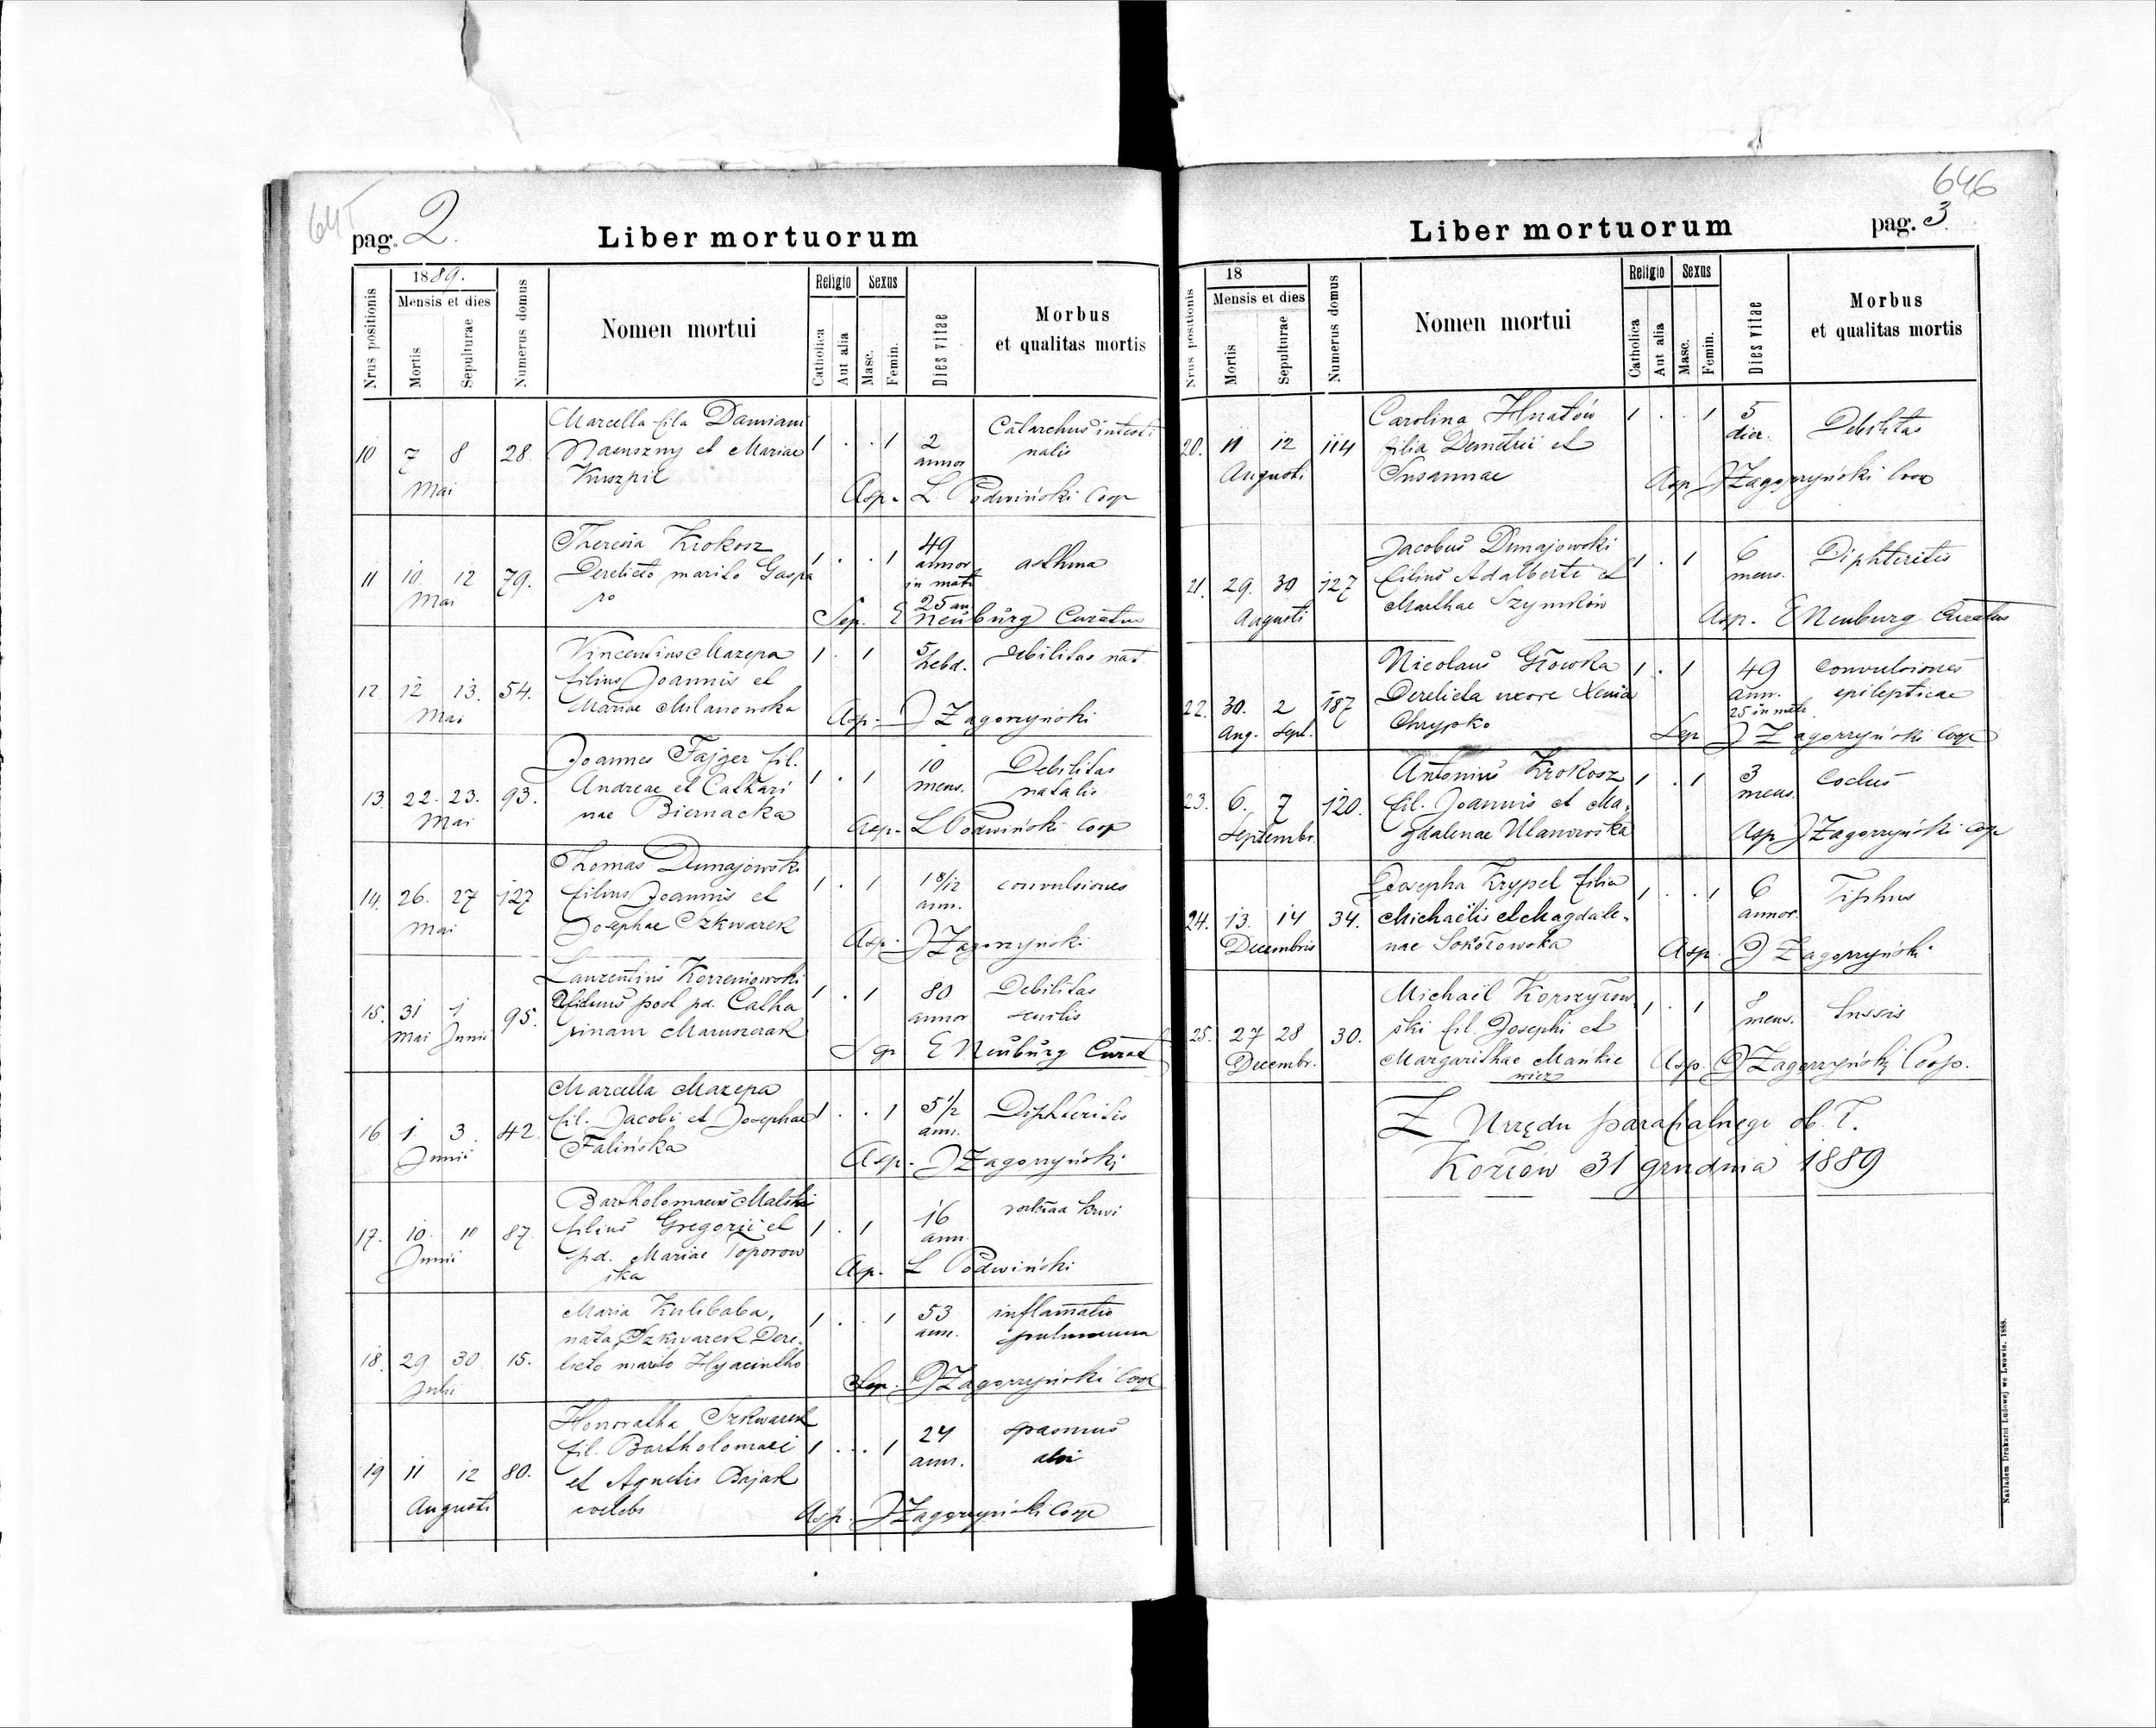 645
pag. 2.
Liber mortuorum
Nrus positionis
1889.
Mensis et dies
Mortis
Sepulturae
Numerus domus
Nomen mortui
Religio
Catholica
Aut alia
Sexus
Masc.
Femin.
Dies vitae
Morbus
et qualitas mortis
Marcella fila Damiani
10 7 8 28. et Mariae 1 . . 1 2 Catarchus intesti
Mai annor nalis
Asp. L Podwiński Coop
Theresia Krokosz
11 10. 12 79. Derelicto marito Gaspa 1 . . 1 49 asthma
Mai ro annor
in matr
25 an.
Sep. E Neuburg Curatus
Vincentius Mazepa
12 12 13. 54. filius Joannis et 1 . 1 5 debilitas nat
Mai Mariae Milanowska hebd.
Asp. J Zagorzyński
Joannes Fajger fil.
13. 22. 23. 93. Andreae et Cathari 1 . 1 10 Debilitas
Mai nae Biernacka mens. natalis
Asp. L Podwiński Coop
Thomas Dunajowski
14. 26. 27 127 filius Joannis et 1 . 1 1 8/12 convulsiones
Mai Josephae Szkwarek ann.
Asp. J Zagorzyński
Laurentius Korzeniowski
15. 31 1 95. viduus post pd. Catha 1 . 1 80 Debilitas
Mai Junii rinam Maruszczak annor senilis
Sep E Neuburg Curat
Marcella Mazepa
16 1 3. 42. fil. Jacobi et Josephae 1 . . 1 5 1/2 Diphteritis
Junii Falińska ann.
Asp. J Zagorzyński
Bartholomaeus Malski
17. 10. 11 87. filius Gregorii et 1 . 1 16
Junii pd. Mariae Toporow ann. krwi
ska
Asp. L Podwiński
Maria Kulibaba,
18. 29. 30. 15. nata Szkwarek Dere- 1 . . 1 53 inflamatio
Julii licto marito Hyacintho ann.
Sep. J Zagorzyński Coop
Honoratha Szkwarek
19 11 12 80. fil. Bartholomaei 1 . . . 1 24 spasmus
Augusti et Agnetis Bajak ann. alvi
coelebs
Asp. J Zagorzyński Coop
646
Liber mortuorum
pag. 3.
Nrus positionis
18
Mensis et dies
Mortis
Sepulturae
Numerus domus
Nomen mortui
Religio
Catholica
Aut alia
Sexus
Masc.
Femin.
Dies vitae
Morbus
et qualitas mortis
Carolina Hnatów
20. 11 12 114 filia Demetrii et 1 . . 1 5 Debilitas
Augusti Susannae dier.
Asp J Zagorzyński Coop
Jacobus Dunajowski
21. 29. 30 127 filius Adalberti et 1 . 1 6 Diphteritis
Augusti Marthae Szymków mens.
Asp. E Neuburg Curatus
Nicolaus Głowka
22. 30. 2 187 Derelicta uxore Xenia 1 . 1 49 convulsiones
Aug. Sept. Chrypko ann. epilepticae
25 in matr.
Sep J Zagorzyński Coop
Antonius Krokosz
23. 6. 7 120. fil. Joannis et Ma- 1 . 1 3
Septembr. gdalenae Ulanowska mens.
Asp J Zagorzyński Coop
Josepha Krypel filia
24. 13. 14 34. Michaëlis et Magdale- 1 . . 1 6 Tiphus
Decembris nae Sokołowska annor.
Asp. J Zagorzyński
Michaël
25. 27 28 30. ski fil. Josephi et 1 . 1 mens. tussis
Decembr. Margarithae Mańkie
wicz
Asp. J Zagorzyński Coop.
Z Urzędu parafialnego ob. ł.
Kozłów 31 grudnia 1889
Nakładem Drukarni Ludowej we Lwowie. 1888.